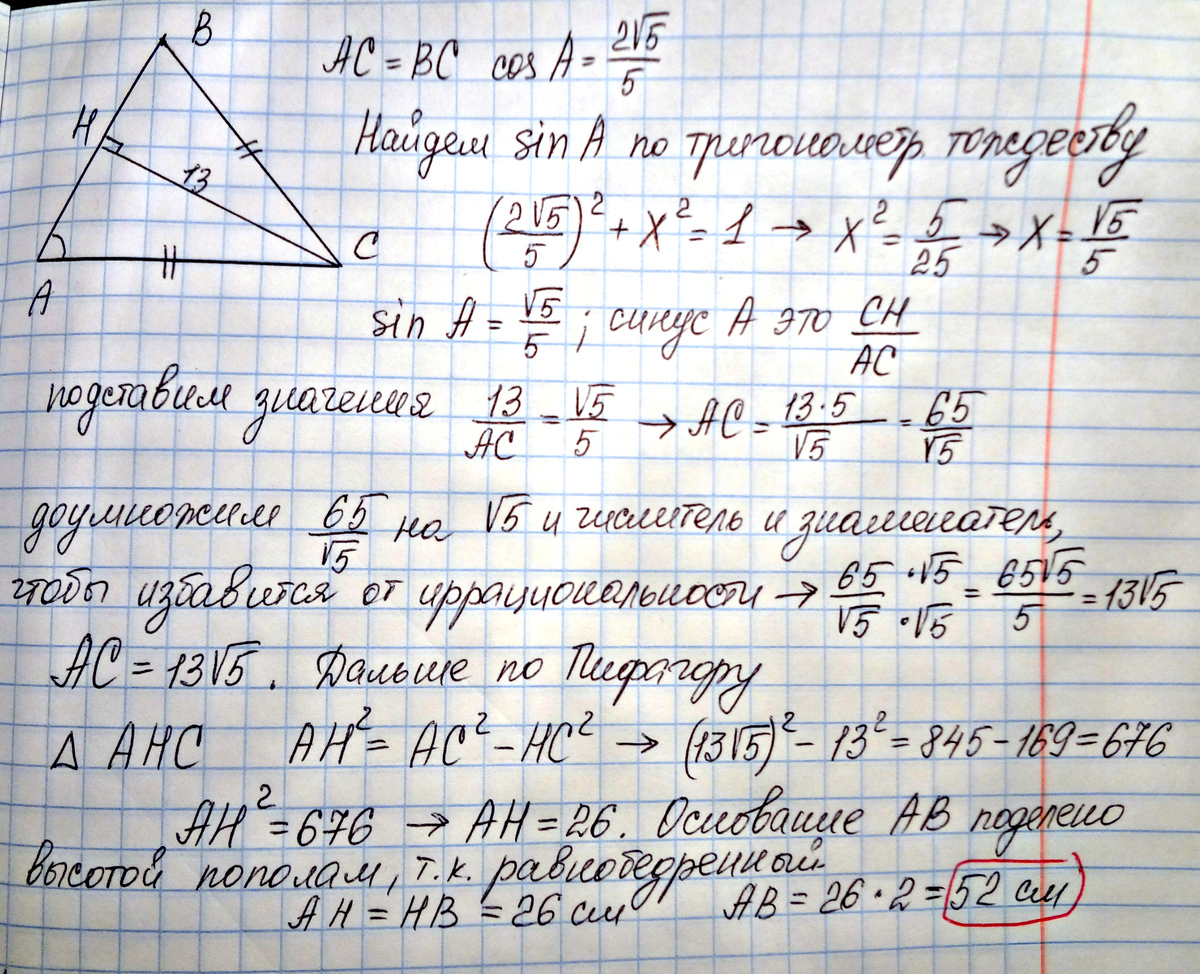 B
H
13
A
C
AC = BC cos A = 2√5/5
Найдем sin A по тригонометр. тождеству
(2√5/5)² + x² = 1 → x² = 5/25 → x = √5/5
sin A = √5/5 ; синус A это CH/AC
подставим значения 13/AC = √5/5 → AC = 13·5/√5 = 65/√5
доумножим 65/√5 на √5 и числитель и знаменатель,
чтобы избавится от иррациональности → 65·√5/√5·√5 = 65√5/5 = 13√5
AC = 13√5. Дальше по Пифагору
Δ AHC AH² = AC² − HC² → (13√5)² − 13² = 845 − 169 = 676
AH² = 676 → AH = 26. Основание AB поделено
высотой пополам, т.к. равнобедренный
AH = HB = 26 см AB = 26·2 = 52 см